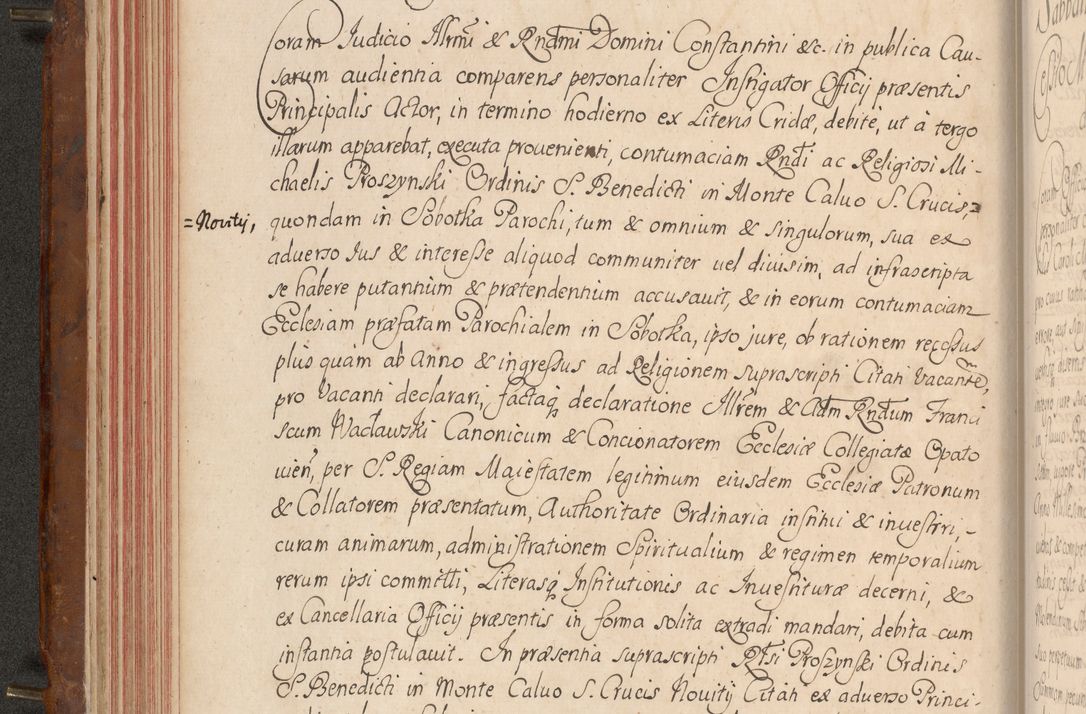 Coram Judicio Illrmi & Rndmi Domini Constantini &c. in publica Cau-
sarum audientia comparens personaliter Instigator Officij præsentis
Principalis Actor, in termino hodierno ex Literis Cridæ, debite, ut à tergo
illarum apparebat, executa prouenienti, contumaciam Rndi ac Religiosi Mi-
chaelis Proszynski Ordinis S. Benedicti in Monte Caluo S. Crucis,=
=Nouitij,
quondam in Sobotka Parochi, tum & omnium & singulorum, sua ex
aduerso Jus & interesse aliquod communiter uel diuisim, ad infrascripta
se habere putantium & prætendentium accusauit, & in eorum contumaciam
Ecclesiam præfatam Parochialem in Sobotka, ipso jure, ob rationem recessus
plus quàm ab Anno & ingressus ad Religionem suprascripti Citati Vacantem,
pro Vacanti declarari, factaq declaratione Illrem & Adm Rndum Franci
scum Wacławski Canonicum & Concionatorem Ecclesiæ Collegiatæ Opato
uien, per S. Regiam Maiestatem legitimum eiusdem Ecclesiæ Patronum
& Collatorem præsentatum, Authoritate Ordinaria institui & inuestiri,-
curam animarum, administrationem Spiritualium & regimen temporalium
rerum ipsi committi, Literasq Institutionis ac Inuestituræ decerni, &
ex Cancellaria Officij præsentis in forma solita extradi mandari, debita cum
instantia postulauit. In præsentia suprascripti Rlsi Proszynski Ordinis
S. Benedicti in Monte Caluo S. Crucis Nouitij Citati ex aduerso Princi-